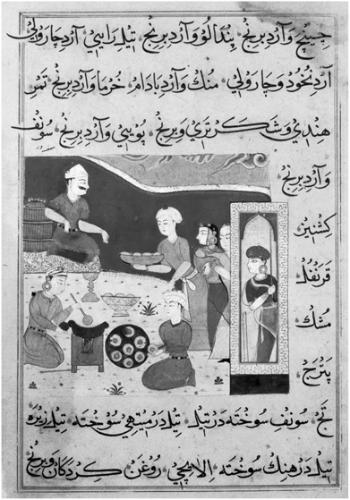 چینچ و آرد برنج پندالو و آرد برنج تیل رایی آرد چارولی
آرد نخود و چارولی منک و آرد بادام خرما و آرد برنج تمر
هندی و شکر تری و برنج و آرد برنج سونف
و آرد برنج
کشنیز
قرنفل
مشک
پترج
تج سونف سوخته در تیل تیل در میتهی سوخته تیل زیره
تیل در هنک سوخته الاچی روغن کردکان و برنج